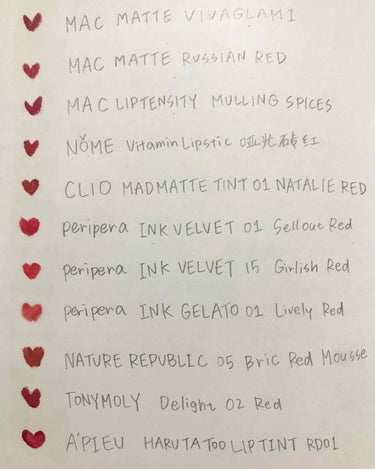 MAC MATTE VIVAGLAM I
MAC MATTE RUSSIAN RED
MAC LIPTENSITY MULLING SPICES
NǑME Vitamin Lipstic 哑光砖红
CLIO MADMATTE TINT 01 NATALIE RED
peripera INK VELVET 01 Sellout Red
peripera INK VELVET 15 Girlish Red
peripera INK GELATO 01 Lively Red
NATURE REPUBLIC 05 Bric Red Mousse
TONYMOLY Delight 02 Red
A'PIEU HARUTATOO LIP TINT RD01